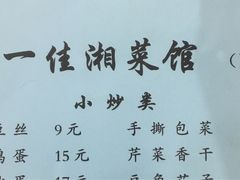 一佳湘菜馆（
小炒类
豆丝 9元 手撕包菜
鸡蛋 15元 芹菜香干
17元